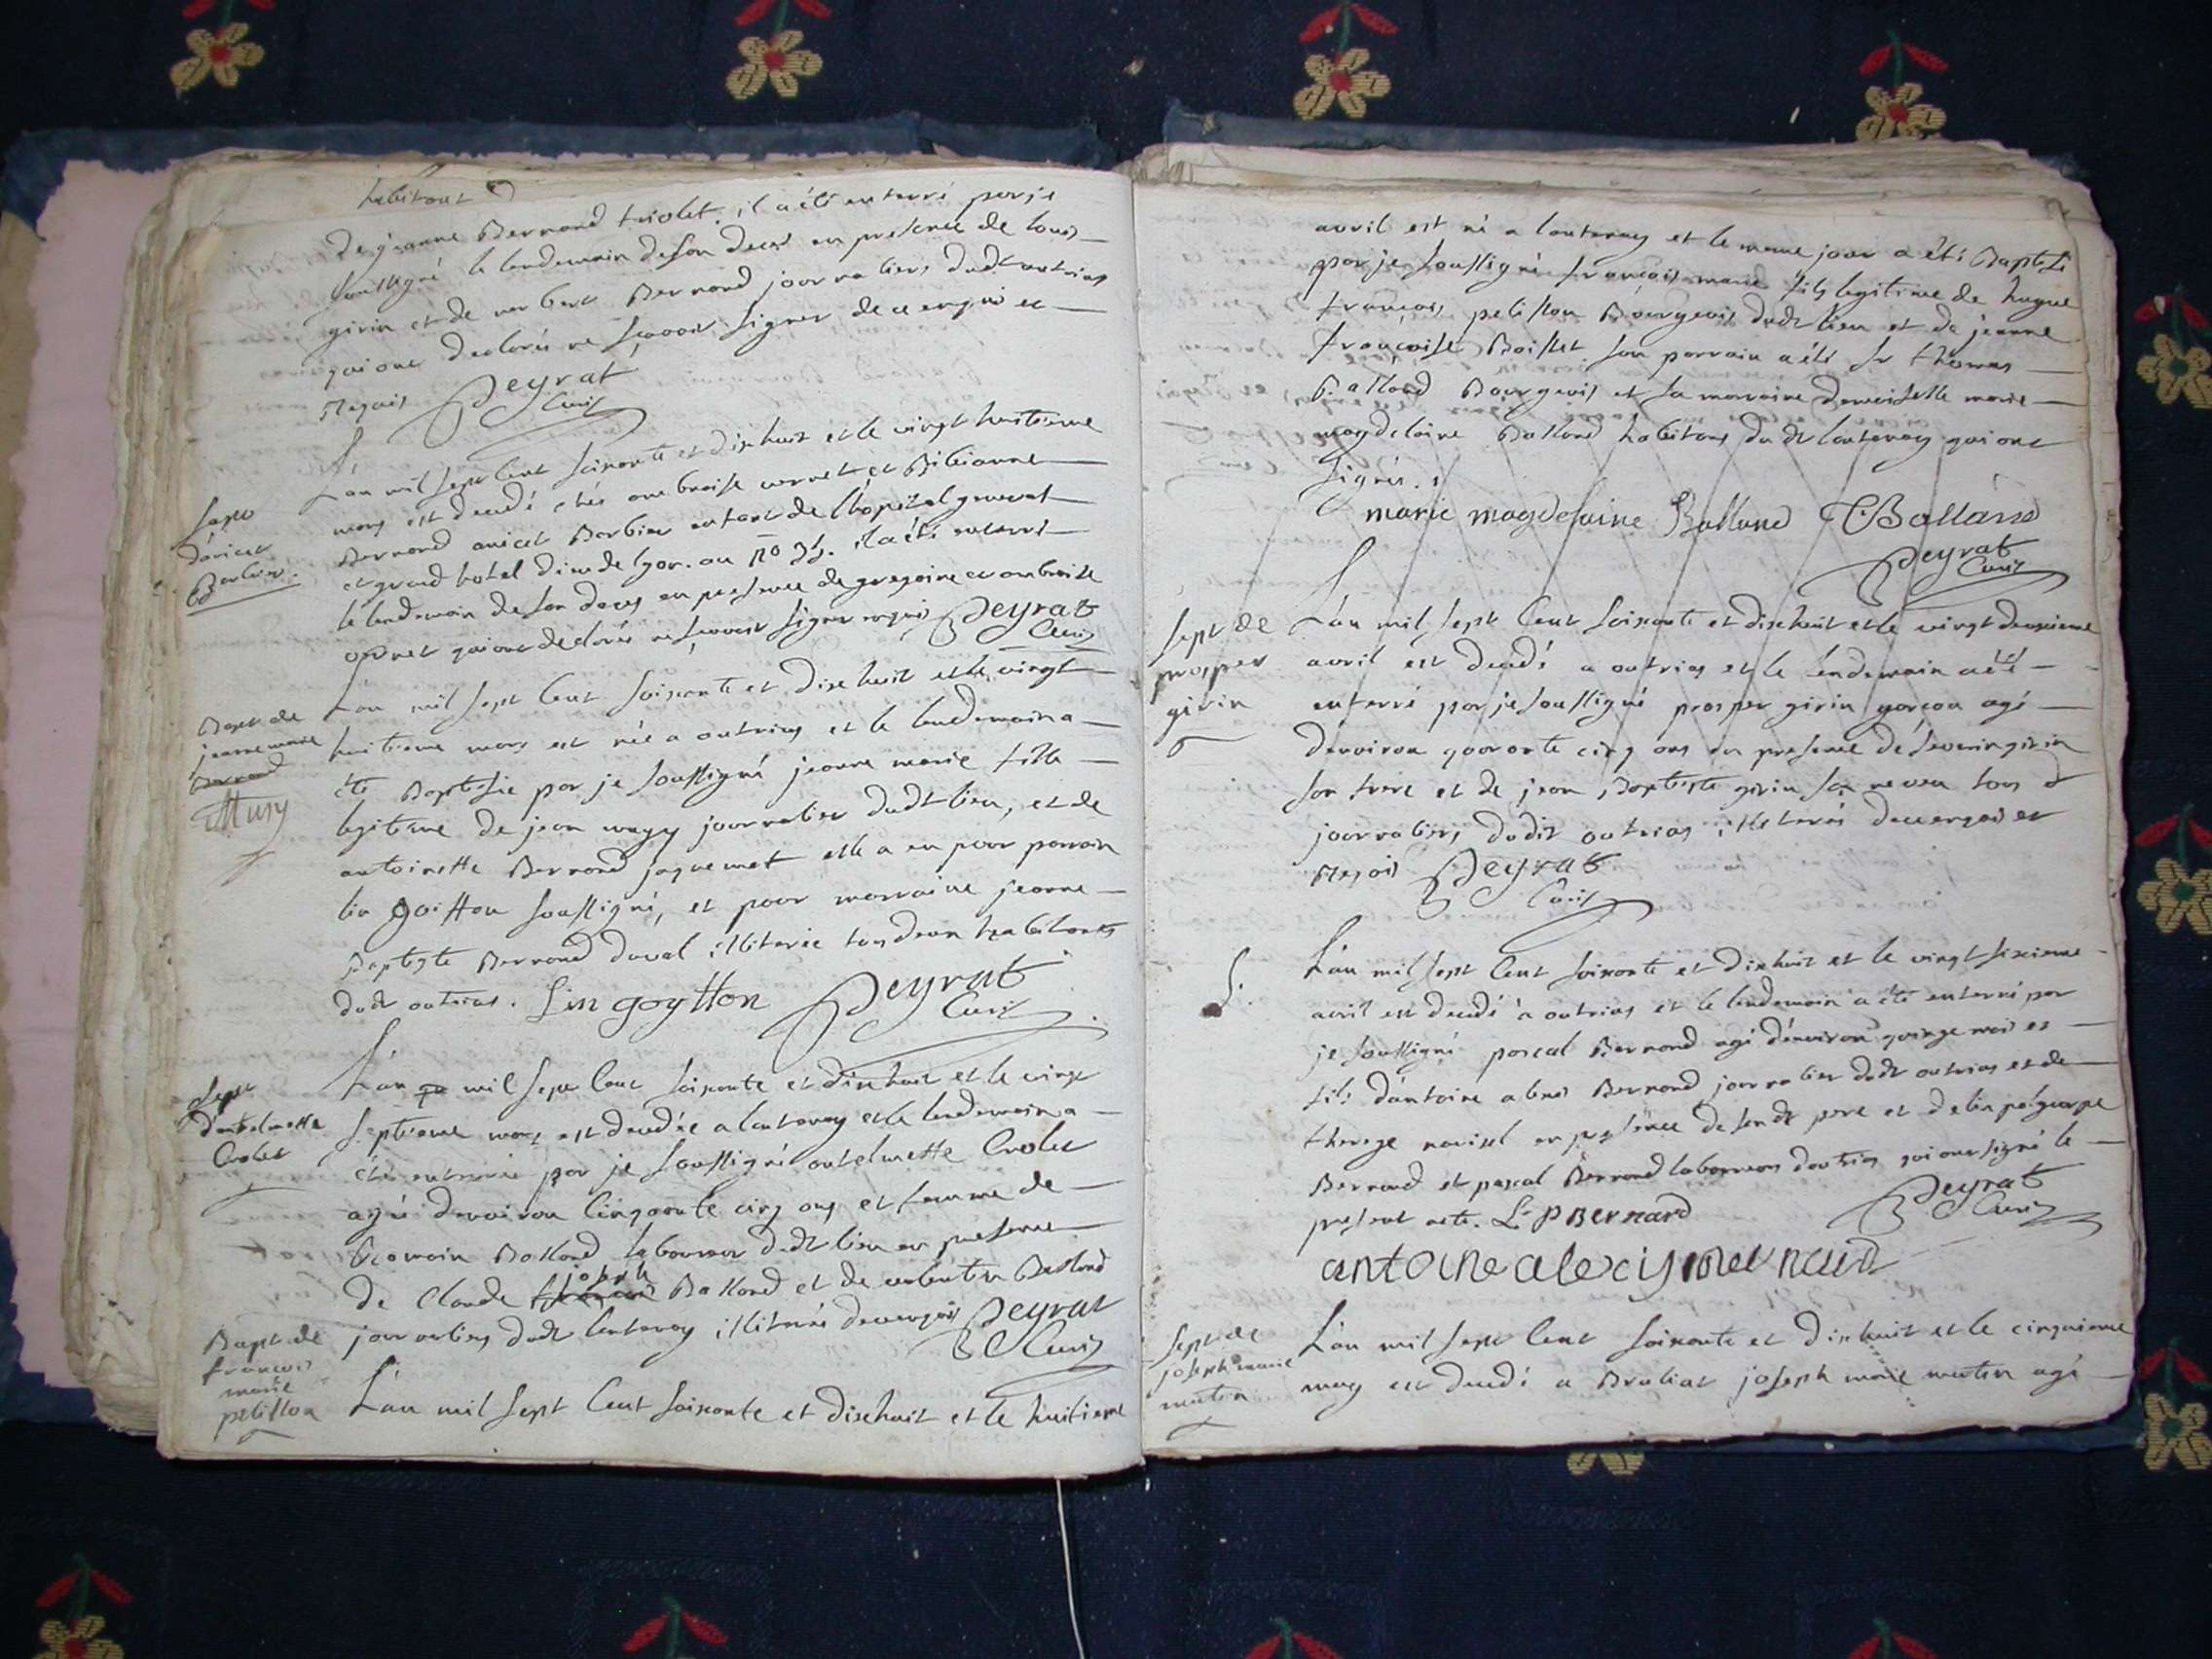 habitant
de jeanne Bernand triolet. il a été enterré par je
soussigné le lendemain de son deces en presence de louis
girin et de norbert Bernand journaliers dudt outrias
qui ont declarés ne sçavoir signer de ce enquis et
Requis Peyrat
Curé
L'an mil sept cent soixante et dixhuit et le vingt huitieme
mars est decedé chés ambroise vernet et Bibianne
Bernand anicet Barbier enfant de l'hopital general
et grand hotel dieu de lyon. au no 35. il a été enterré
le lendemain de son deces en presence de gregoire et ambroise
vernet qui ont declarés ne sçavoir signer requis Peyrat
Curé
Sept
d'anicet
Barbier.
L'an mil sept cent soixante et dixhuit et le vingt
huitieme mars est née a outrias et le lendemain a
été Baptisée par je soussigné jeanne marie fille
legitime de jean mugy journalier dudt lieu, et de
antoinette Bernand jaquemet elle a eu pour parrain
lin goitton soussigné, et pour marraine jeanne
Baptiste Bernand duval illiterée tous deux habitants
dudt outrias. Lin goytton Peyrat
Curé
Bapt de
jeanne marie
Bernand
Musy
L'an mil sept cent soixante et dixhuit et le vingt
septieme mars est decedée a lantenay et le lendemain a
été enterrée par je soussigné antelmette Crolet
agée denviron cinquante cinq ans et femme de
Romain Balland laboureur dudt lieu en presence
de claude joseph Balland et de valentin Balland
journaliers dudt lantenay illiterés de ce enquis Peyrat
Curé
Sept
d'antelmette
Crolet
L'an mil sept cent soixante et dixhuit et le huitieme
Bapt de
francois
marie
pelisson
avril est né a lantenay et le meme jour a été Baptisé
par je soussigné françois marie fils legitime de hugue
françois pelisson Bourgeois dudt lieu et de jeanne
françoise Boisset son parrain a été sr thomas
Balland Bourgeois et sa marraine demoiselle marie
magdelaine Balland habitans dudt lantenay qui ont
signés.
marie magdelaine Balland T Balland
Peyrat
Curé
L'an mil sept cent soixante et dixhuit et le vingt deuxieme
avril est decedé a outrias et le lendemain a été
enterré par je soussigné prosper girin garcon agé
denviron quarante cinq ans en presence de severin girin
son frere et de jean Baptiste girin son neveu tous
journaliers dudit outrias illiterés de ce enquis et
Requis Peyrat
Curé
Sept de
prosper
girin
L'an mil sept cent soixante et dixhuit et le vingt sixieme
avril est decedé a outrias et le lendemain a été enterré par
je soussigné pascal Bernand agé d'environ quinze mois et
fils d'antoine alexis Bernand journalier dudt outrias et de
therese en presence de sondt pere et de lin policarpe
Bernand et pascal Bernand laboureurs doutrias qui ont signé le
present acte. L. P Bernard Peyrat
Curé
antoine alexis Bernand
S.
L'an mil sept cent soixante et dixhuit et le cinquieme
may est decedé a Brenod joseph marie mutin agé
Sept de
joseph marie
mutin